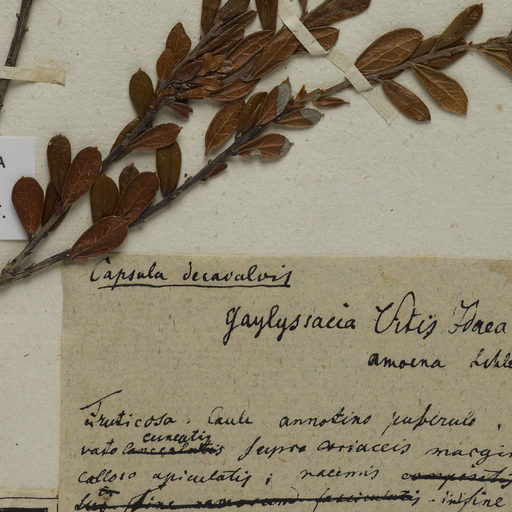 A
Capsula decavalvis
Gaylyssacia Vitis Idaea
amoena
Fruticosa. Caule annotino puberulo,
cuneatis
vato lanceolatis supra coriaceis margin
calloso apiculatis; racemis compositis
sub fine ramorum fasciculatis. in fine